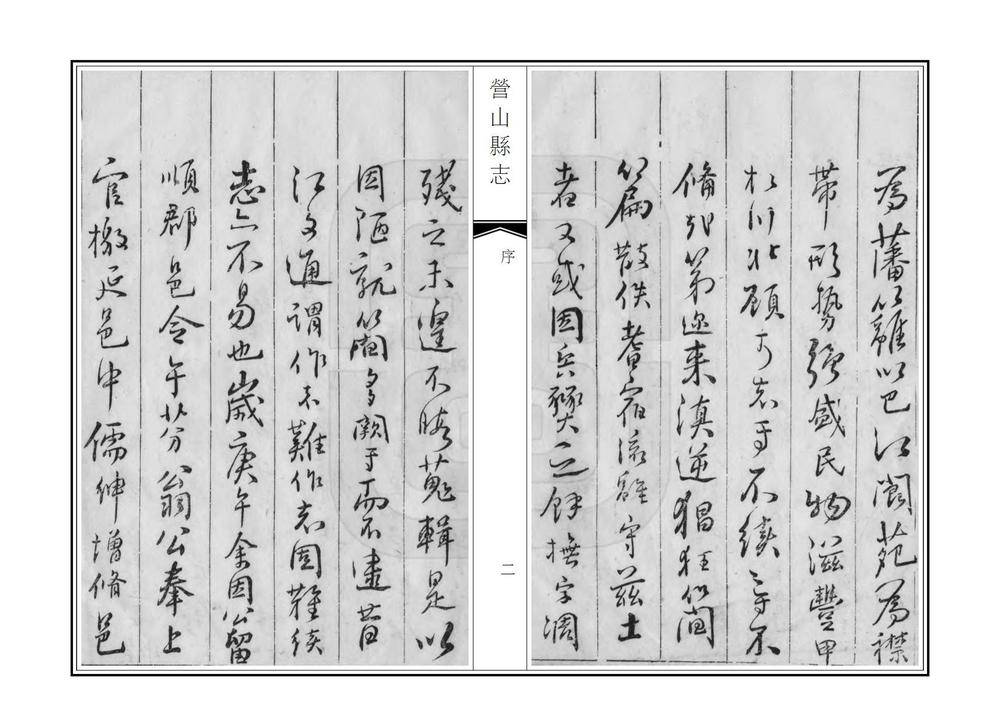 為藩籬以巴江閬苑為襟
帶形勢強盛民物滋豐甲
於川北顧可志乎不續不
備耶第邇來滇逆猖狂簡
篇散佚耆宿流離守茲土
者又或因兵燹之餘撫字凋
營山縣志
序
二
殘之未遑不暇蒐輯是以
因陋就簡多闕而不逮昔
江文通謂作志難作志固難續
志亦不易也歲庚午余因公留
順郡邑令翁公奉上
官檄延邑中儒紳增脩邑